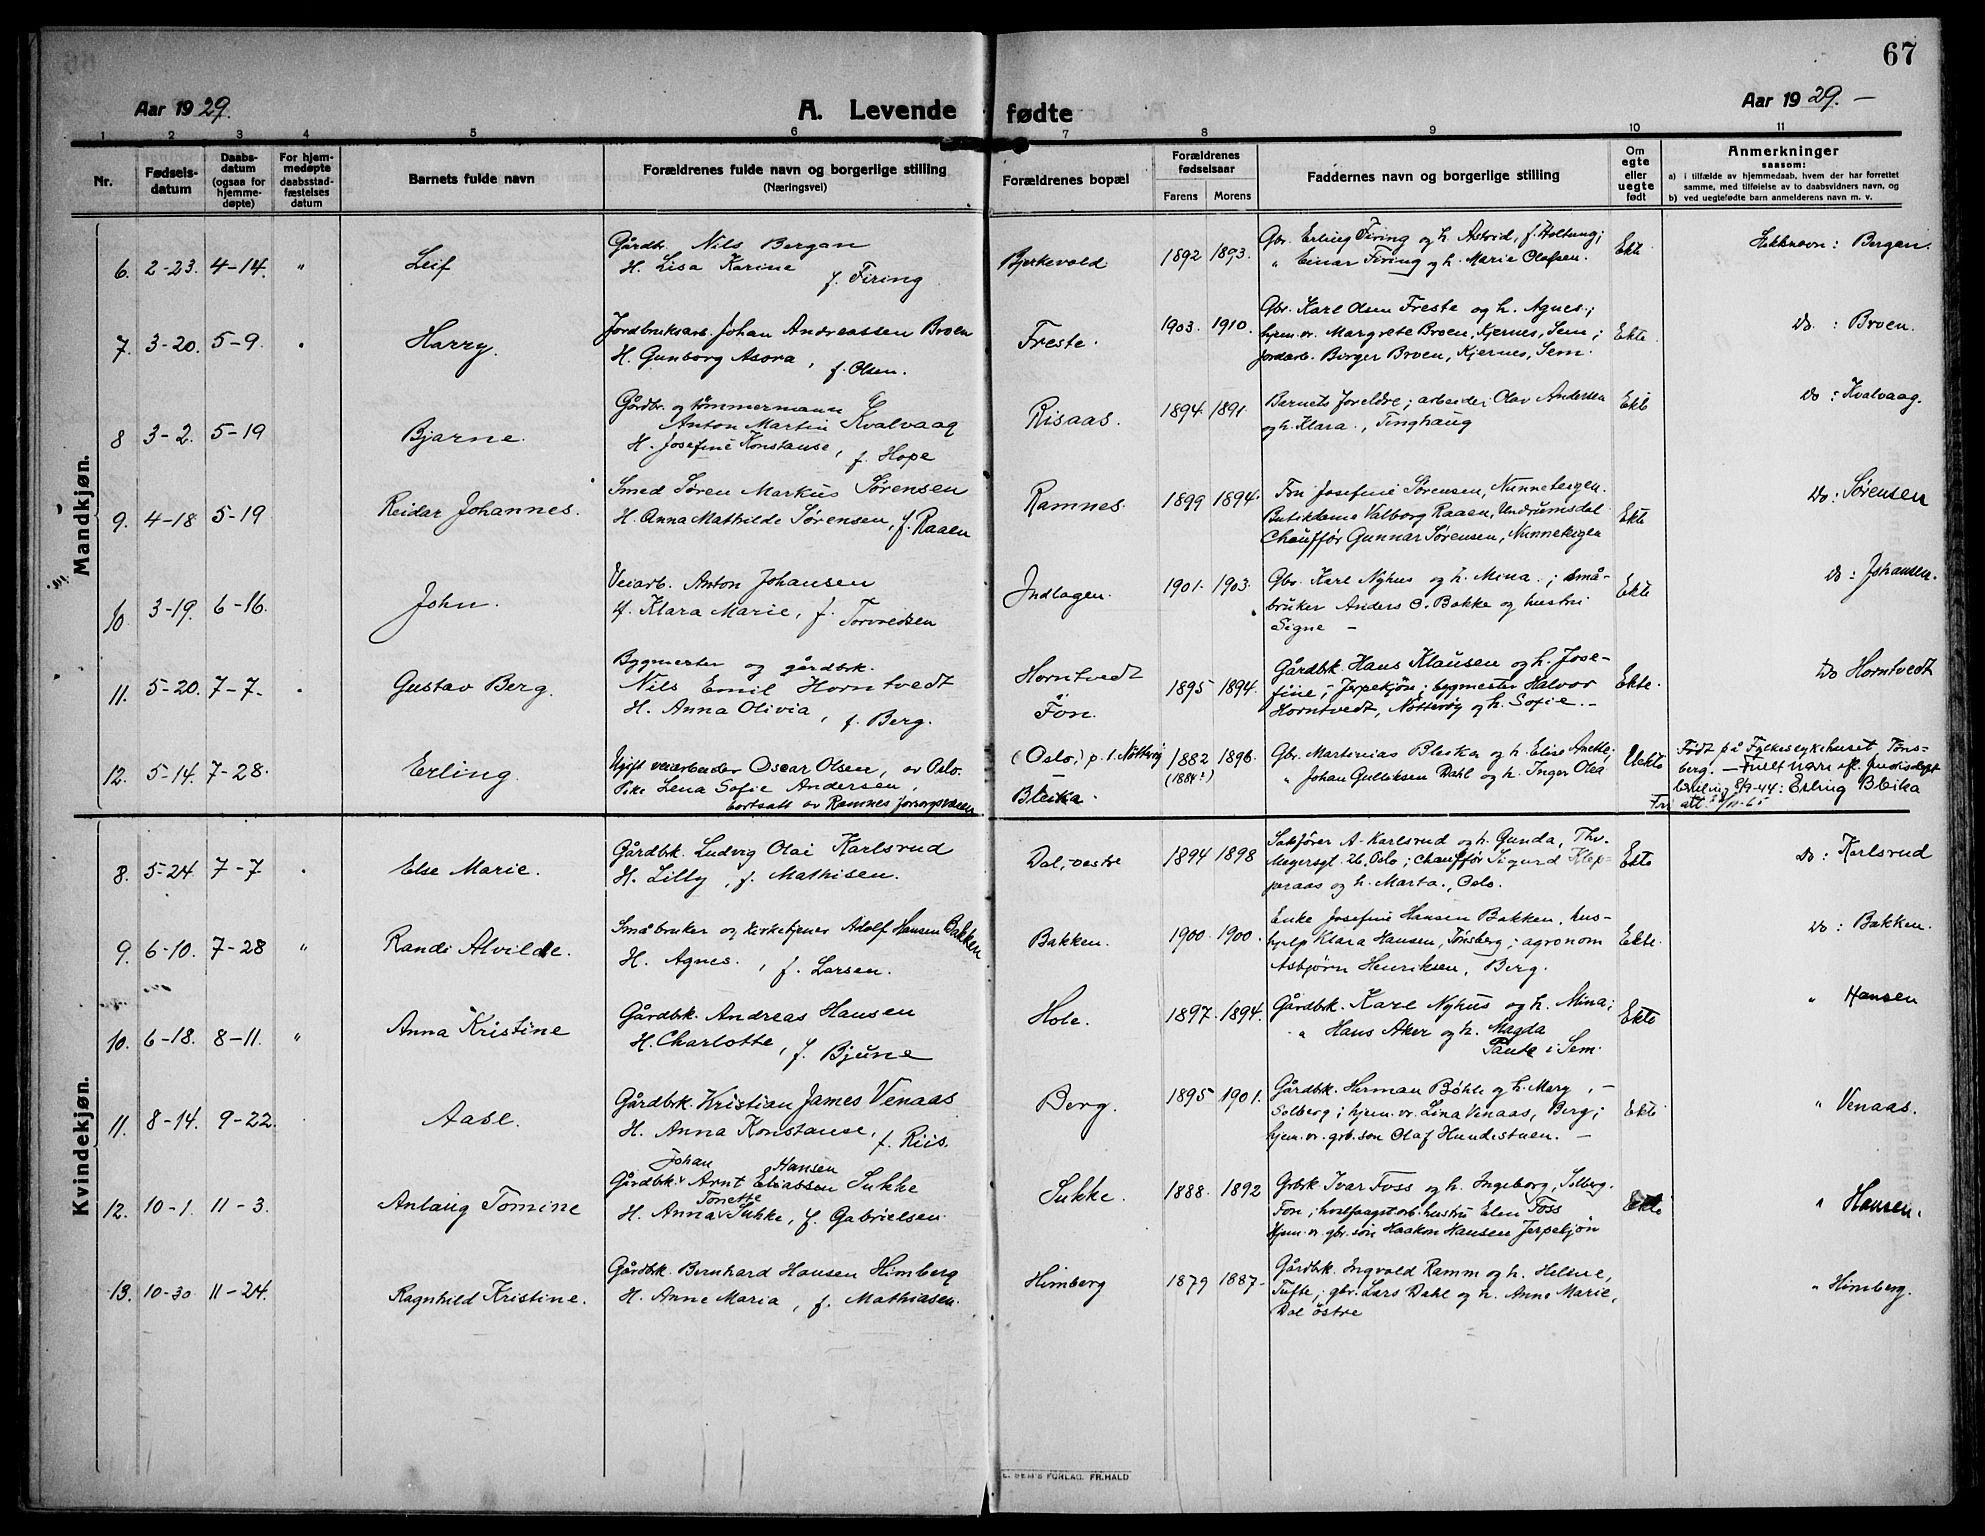 67
Aar 1929.
A. Levende fødte
Aar 1929. —
1 2 3 4 5 6 7 8 9 10 11
Nr.
Fødsels-
datum
Daabs-
datum
(ogsaa for
hjemme-
døpte)
For hjem-
medøpte
daabsstad-
fæstelses
datum
Barnets fulde navn
Forældrenes fulde navn og borgerlige stilling
(Næringsvei)
Forældrenes bopæl
Forældrenes
fødselsaar
Farens Morens
Faddernes navn og borgerlige stilling
Om
egte
eller
uegte
født
Anmerkninger
saasom:
a) i tilfælde av hjemmedaab, hvem der har forrettet
samme, med tilføielse av to daabsvidners navn, og
b) ved uegtefødte barn anmelderens navn m. v.
Mandkjøn.
6. 2-23. 4-14. " Leif
Gårdbr. Nils Bergan
H. Lisa Karine
f. Firing
Bjerkevold 1892 1893.
Gbr. Erling Firing og h. Astrid, f. Holtung;
" Einar Firing og h. Marie Olafsen.
Ekte
Slektsnavn: Bergan.
7. 3-20. 5-9. Harry.
Jordbruksarb. Johan Andreassen Broen
H. Gunborg Asora, f. Olsen.
Freste. 1903. 1910.
Gbr. Karl Olsen Freste og h. Agnes;
hjem.vr. Margrete Broen, Kjernes, Sem;
Jordarb. Borger Broen, Kjernes, Sem.
Ekte
Do. : Broen.
8 3-2. 5-19 Bjarne.
Gårdbr. og tømmermann
Anton Martin Kvalvaag
H. Josefine Konstanse,
f. Hope
Risaas. 1894. 1891.
Barnets foreldre; arbeider Olav Andersen
og h. Klara., Tinghaug
Ekte
Do : Kvalvaag.
9. 4-18 5-19 Reidar Johannes.
Smed Søren Markus Sørensen
H. Anna Mathilde Sørensen, f. Raaen
Ramnes. 1899 1894.
Fru Josefine Sørensen, Nunnebergen.
Butikdame Valborg Raaen, Undrumsdal
Chauffør Gunnar Sørensen, Nunnebergen
Ekte
Do: Sørensen
10 3-19. 6-16. John.
Veiarb. Anton Johansen
H. Klara Marie, f. Torvredsen
Indlagen. 1901. 1903.
Gbr. Karl Nyhus og h. Mina.; små-
bruker Anders O. Bakke og hustru
Signe —
Ekte
Do : Johansen.
11. 5-20. 7-7. Gustav Berg.
Bygmester og gårdbrk.
Nils Emil Horntvedt
H. Anna Olivia, f. Berg.
Horntvedt
Fon. 1895 1894.
Gårdbk. Hans Klausen og h. Jose-
fine, Jerpekjøn; bygmester Halvor
Horntvedt, Nøtterøy og h. Sofie. —
Ekte.
Do Horntvedt
12. 5-14. 7-28. Erling.
Ugift veiarbeider Oscar Olsen, av Oslo.
Pike Lena Sofie Andersen,
bortsatt av Ramnes forsorgsvæsen
(Oslo,) p. t. Nøtterøy
—
Bleika. 1882 1896.
(1884?)
Gbr. Martinius Bleika og h. Elise Anette;
" Johan Gulliksen Dahl og h. Inger Olea
Uekte
Født på Fylkessykehuset, Tøns-
berg. — Fullt navn efl. Justisdept
8/9-44: Erling Bleika
Kvindekjøn.
8. 5-24 7-7 Else Marie.
Gårdbk. Ludvig Olai Karlsrud
H. Lilly, f. Mathisen.
Dal, vestre 1894 1898
Sakfører A. Karlsrud og h. Gunda, Th.
Meyersgt 26, Oslo; chauffør Sigurd Klep-
peraas og h. Marta., Oslo.
Ekte
Do : Karlsrud
9. 6-10. 7-28 " Randi Alvilde.
Småbruker og kirketjener Adolf Hansen Bakken
H. Agnes., f. Larsen.
Bakken. 1900. 1900.
Enke Josefine Hansen Bakken, hus-
hjelp Klara Hansen, Tønsberg; agronom
Asbjørn Henriksen, Berg.
Ekte.
Do : Bakken.
10. 6-18. 8-11. " Anna Kristine
Gårdbk. Andreas Hansen
H. Charlotte, f. Bjune
Hole. 1897. 1894.
Gårdbk. Karl Nyhus og h. Mina;
" Hans Aker og h. Magda
Paule i Sem.
Ekte
" Hansen
11. 8-14. 9-22. Aase.
Gårdbrk. Kristian James Venaas
H. Anna Konstanse, f. Riis.
Berg. 1895 1901.
Gårdbk. Herman Bøhle og h. Mary, —
Solberg; hjem.vr. Lina Venaas, Berg;
hjem. vr. grb.søn Olaf Hundestuen. —
Ekte
" Venaas.
12. 10-1. 11-3. Anlaug Tomine
Johan Hansen
Gårdbk. Arnt Eliassen Sukke
Tonette
H. Anna Sukke, f. Gabrielsen.
Sukke. 1888. 1892
Grbk. Ivar Foss og h. Ingeborg, Solberg.
Fon; hvalfangstarb. hustru Elen Foss
Hjem. vr. gbr. søn Haakon Hansen Jerpekjøn
Ekte
" Hansen.
13. 10-30 11-24. Ragnhild Kristine.
Gårdbk. Bernhard Hansen Himberg
H. Anne Maria, f. Mathiasen.
Himberg 1879 1887
Gårdbk. Ingvald Ramm og h. Helene,
Tufte; gbr. Lars Dahl og h. Anne Marie,
Dal østre
" Himberg.
E. SEM'S FORLAG. FR.HALD